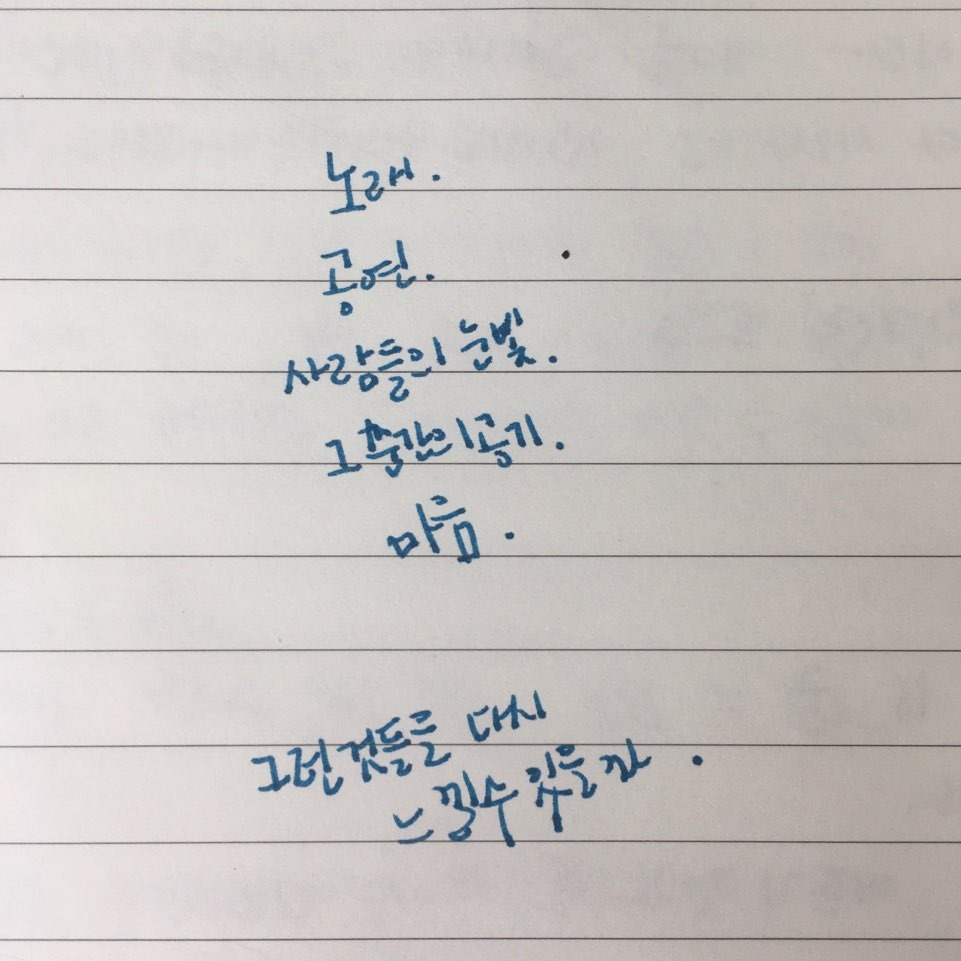 노래.
공연.
사람들의 눈빛.
그 순간의 공기.
마음.
그런 것들을 다시
느낄 수 있을까.